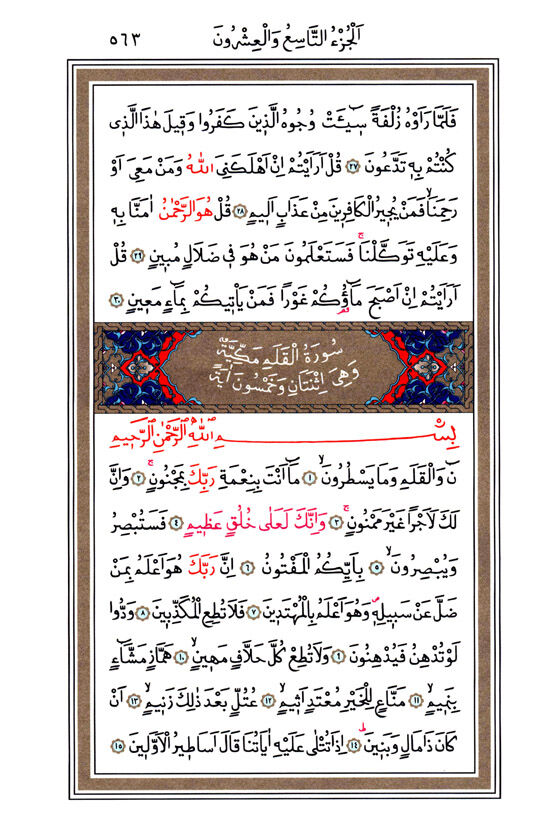 اَلْجُزْءُ التَّاسِعُ وَالْعِشْرُونَ ٥٦٣
فَلَمَّا رَاَوْهُ زُلْفَةً سٖٓيـَٔتْ وُجُوهُ الَّذٖينَ كَفَرُوا وَقٖيلَ هٰذَا الَّذٖى
كُنْتُمْ بِهٖ تَدَّعُونَ ﴿٢٧﴾ قُلْ اَرَاَيْتُمْ اِنْ اَهْلَكَنِىَ اللّٰهُ وَمَنْ مَعِىَ اَوْ
رَحِمَنَاۙ فَمَنْ يُجٖيرُ الْكَافِرٖينَ مِنْ عَذَابٍ اَلٖيمٍ ﴿٢٨﴾ قُلْ هُوَ الرَّحْمٰنُ اٰمَنَّا بِهٖ
وَعَلَيْهِ تَوَكَّلْنَاۚ فَسَتَعْلَمُونَ مَنْ هُوَ فٖى ضَلَالٍ مُبٖينٍ ﴿٢٩﴾ قُلْ
اَرَاَيْتُمْ اِنْ اَصْبَحَ مَٓاؤُ۬كُمْ غَوْرًا فَمَنْ يَأْتٖيكُمْ بِمَٓاءٍ مَعٖينٍ ﴿٣٠﴾
سُورَةُ الْقَلَمِ مَكِّيَّةٌ
وَهِىَ اِثْنَتَانِ وَخَمْسُونَ اٰيَةً
بِسْمِ اللّٰهِ الرَّحْمٰنِ الرَّحٖيمِ
نٓ وَالْقَلَمِ وَمَا يَسْطُرُونَۙ ﴿١﴾ مَٓا اَنْتَ بِنِعْمَةِ رَبِّكَ بِمَجْنُونٍۚ ﴿٢﴾ وَاِنَّ
لَكَ لَاَجْرًا غَيْرَ مَمْنُونٍۚ ﴿٣﴾ وَاِنَّكَ لَعَلٰى خُلُقٍ عَظٖيمٍ ﴿٤﴾ فَسَتُبْصِرُ
وَيُبْصِرُونَۙ ﴿٥﴾ بِاَيِّكُمُ الْمَفْتُونُ ﴿٦﴾ اِنَّ رَبَّكَ هُوَ اَعْلَمُ بِمَنْ
ضَلَّ عَنْ سَبٖيلِهٖ وَهُوَ اَعْلَمُ بِالْمُهْتَدٖينَ ﴿٧﴾ فَلَا تُطِعِ الْمُكَذِّبٖينَ ﴿٨﴾ وَدُّوا
لَوْ تُدْهِنُ فَيُدْهِنُونَ ﴿٩﴾ وَلَا تُطِعْ كُلَّ حَلَّافٍ مَهٖينٍۙ ﴿١٠﴾ هَمَّازٍ مَشَّٓاءٍ
بِنَمٖيمٍۙ ﴿١١﴾ مَنَّاعٍ لِلْخَيْرِ مُعْتَدٍ اَثٖيمٍۙ ﴿١٢﴾ عُتُلٍّ بَعْدَ ذٰلِكَ زَنٖيمٍۙ ﴿١٣﴾ اَنْ
كَانَ ذَا مَالٍ وَبَنٖينَۜ ﴿١٤﴾ اِذَا تُتْلٰى عَلَيْهِ اٰيَاتُنَا قَالَ اَسَاطٖيرُ الْاَوَّلٖينَ ﴿١٥﴾